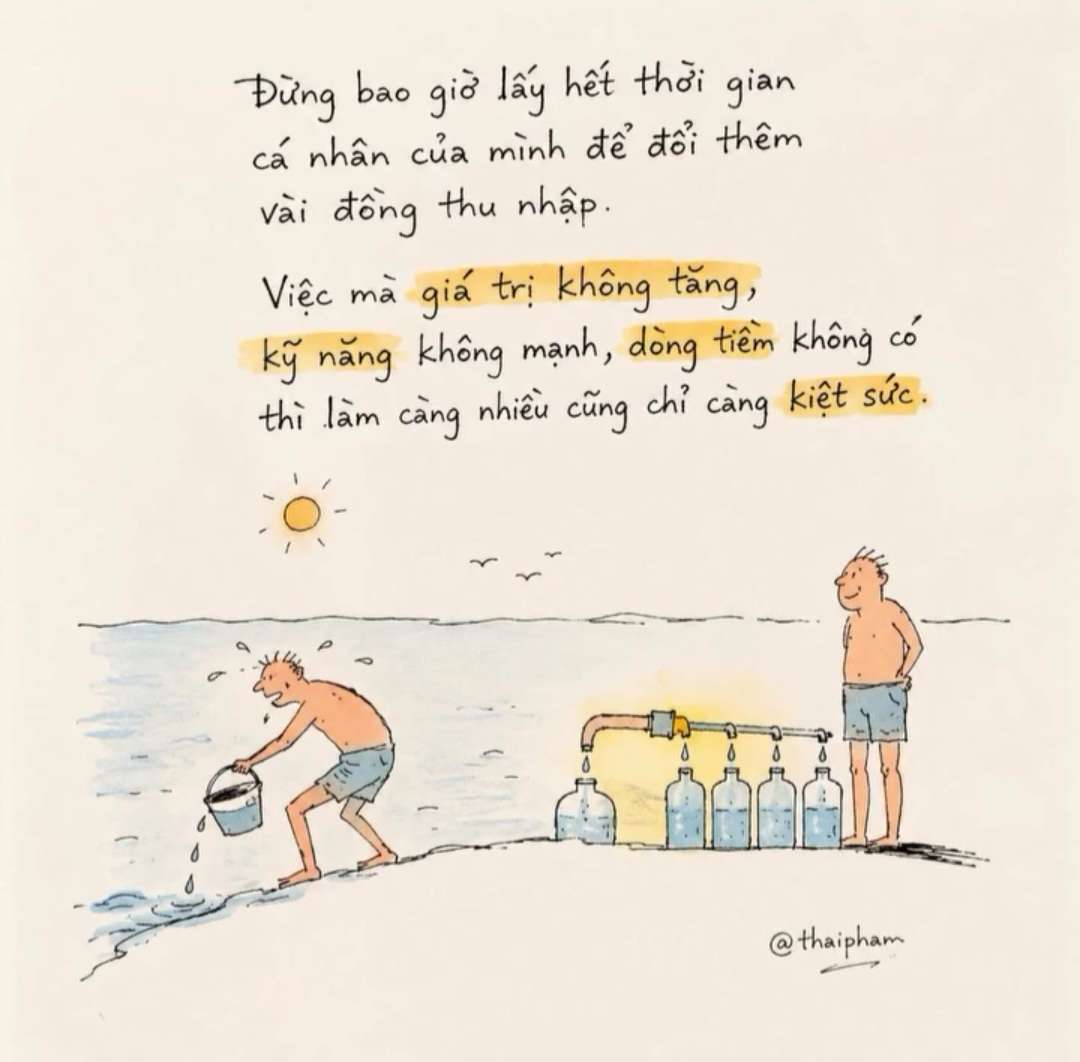 Đừng bao giờ lấy hết thời gian
cá nhân của mình để đổi thêm
vài đồng thu nhập.
Việc mà giá trị không tăng,
kỹ năng không mạnh, dòng tiềm không có
thì làm càng nhiều cũng chỉ càng kiệt sức.
@thaipham